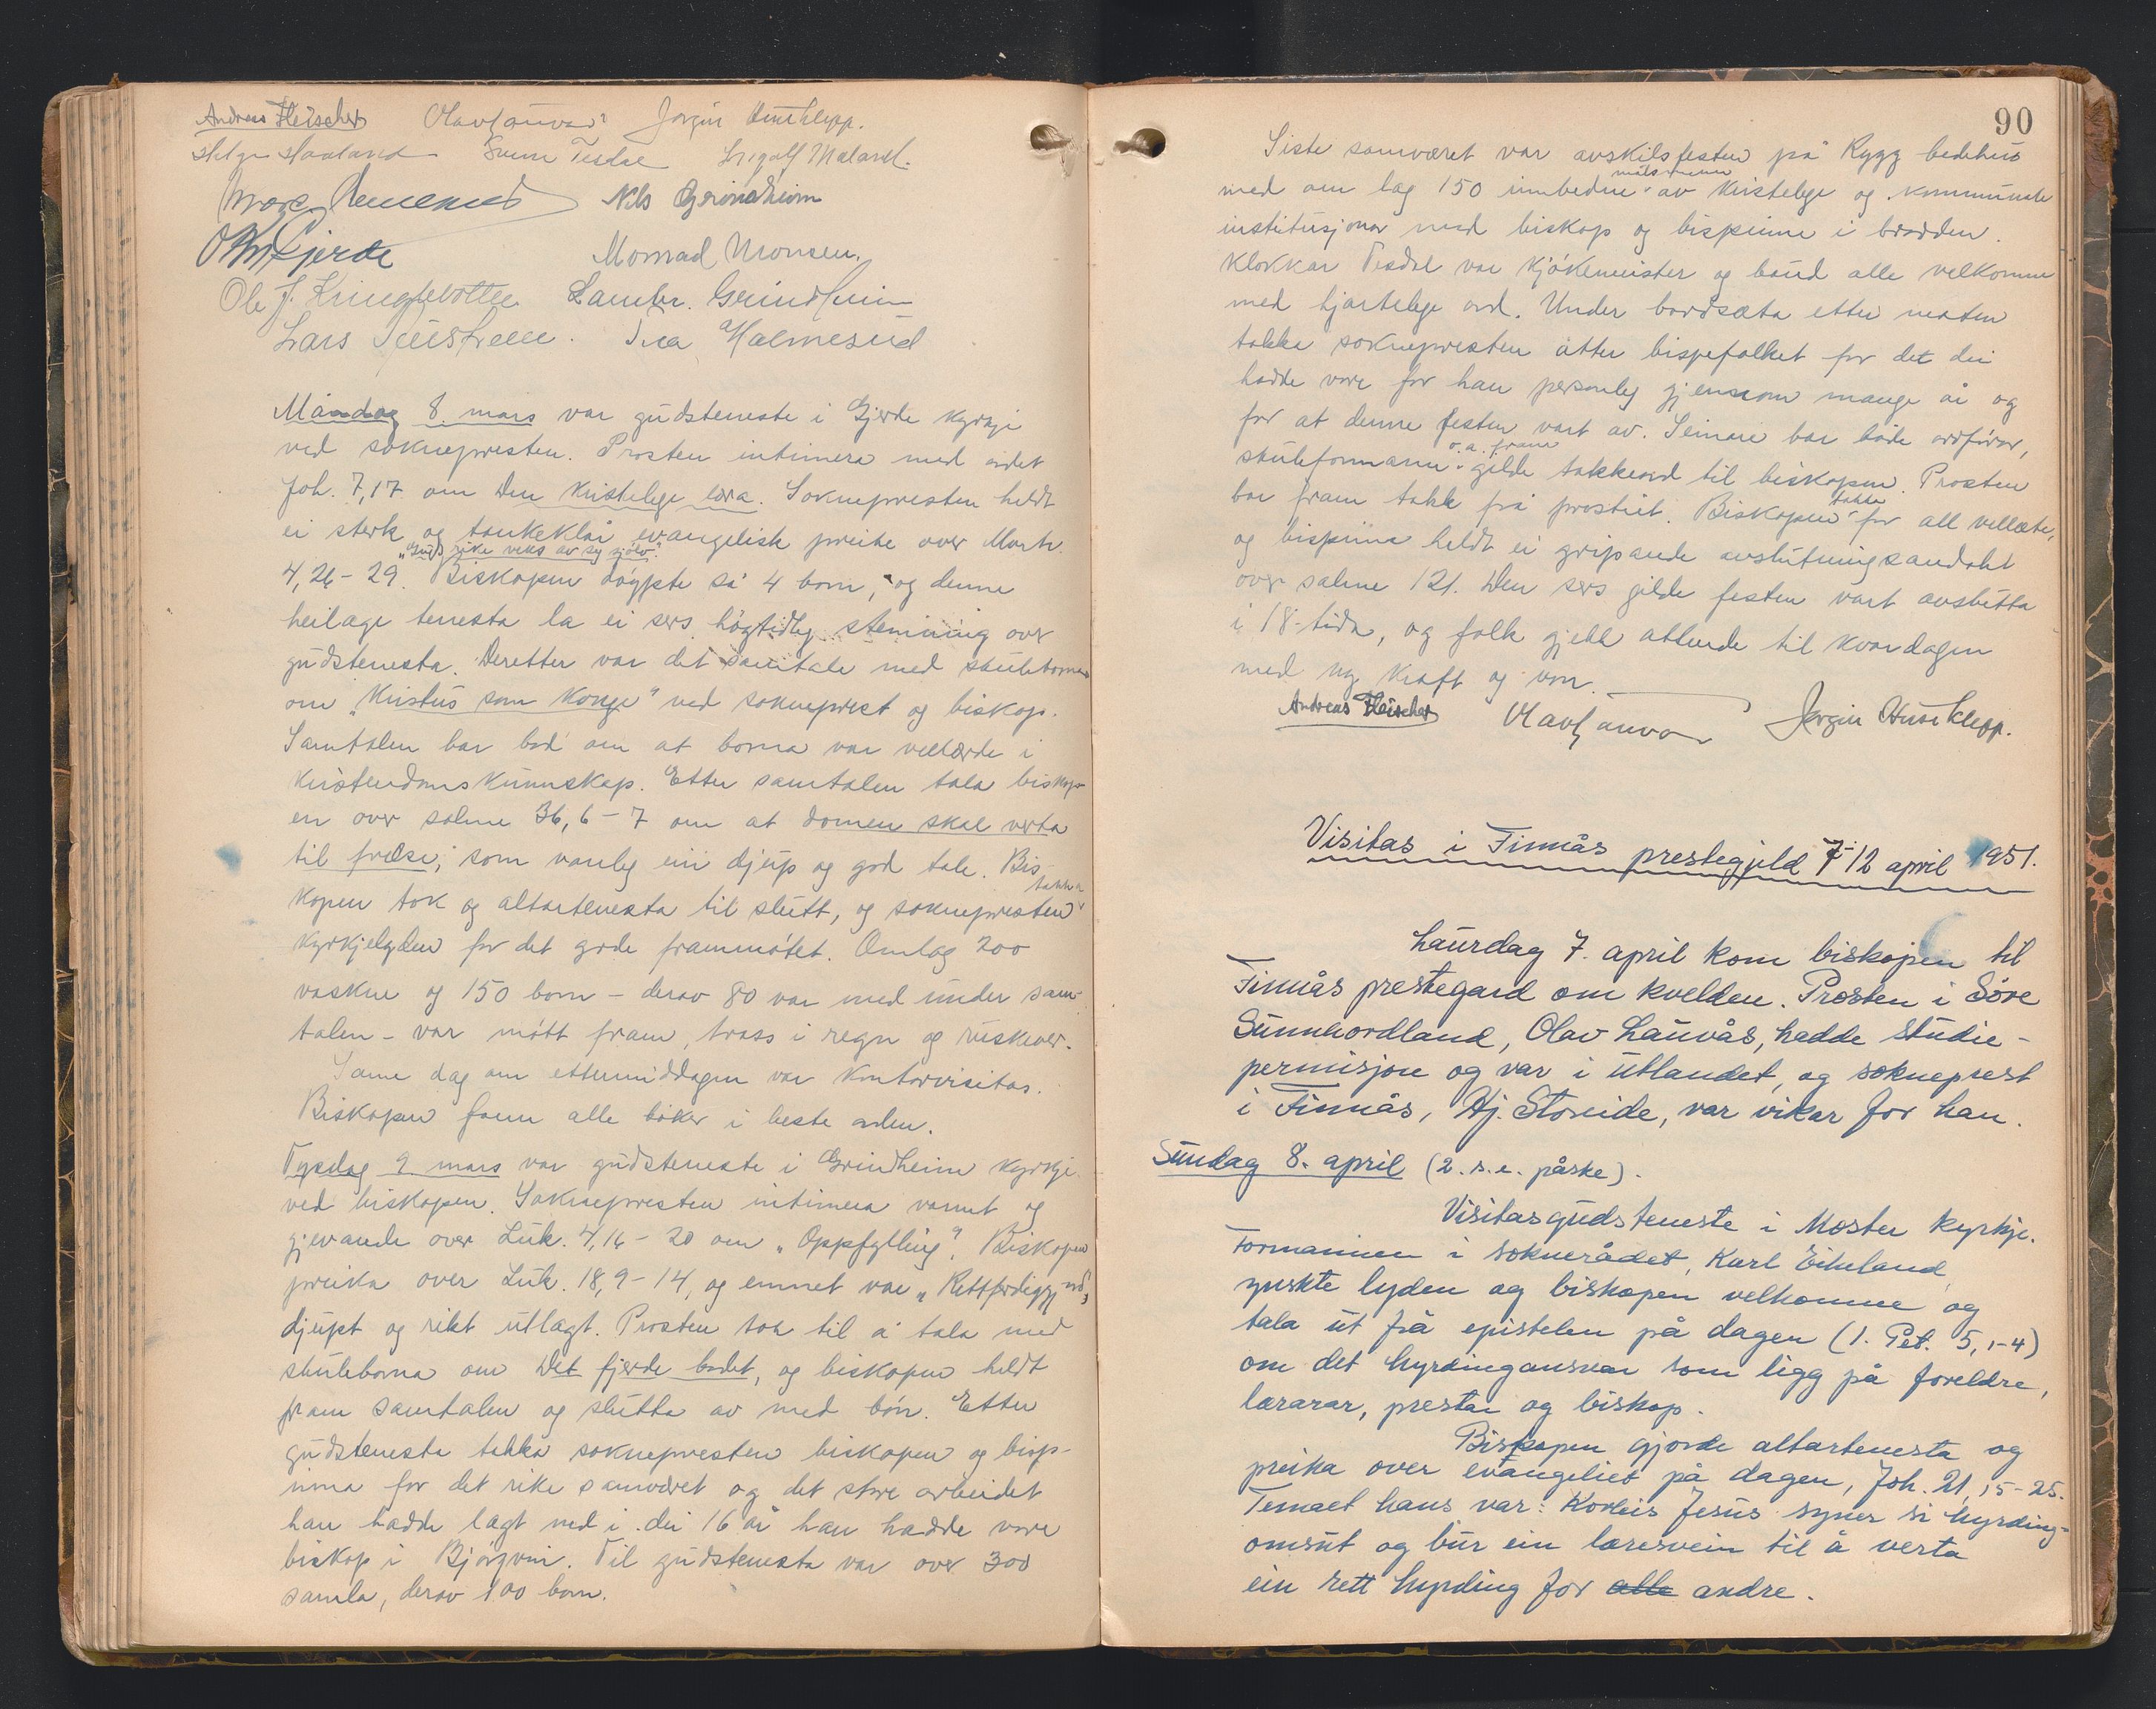 Andreas Fleischer Olav Lauvås Jørgin Huseklepp.
Helge Haaland Svein Tesdal Ingolf Mæland.
Nils Grindheim
O Kr Gjerde Monrad Monsen.
Ole J. Kringlebotten Lambr. Grindheim
Lars Tua Halmesud
Måndag 8. mars var gudsteneste i Gjerde kyrkje
ved soknepresten. Prosten intimera med ordet
Joh. 7,17 om Den kristelege læra. Soknepresten heldt
ei sterk og tankeklår evangelisk preike over Mark.
„Guds rike veks av seg sjølv."
4,26-29. Biskopen døypte så 4 born, og denne
heilage tenesta la ei sers høgtidleg stemning over
gudstenesta. Deretter var det samtale med skuleborna
om „Kristus som Konge" ved sokneprest og biskop.
Samtalen bar bod om at borna var vellærde i
kristendomskunnskap. Etter samtalen tala biskop-
en over salme 36,6-7 om at domen skal verta
til frelse; som vanleg ein djup og god tale. Bis-
takka
kopen tok og altartenesta til slutt, og soknepresten
kyrkjelyden for det gode frammøtet. Omlag 200
vaksne og 150 born - derav 80 var med under sam-
talen - var møtt fram, trass i regn og ruskever.
Same dag om ettermiddagen var kontorvisitas.
Biskopen fann alle bøker i beste orden.
Tysdag 9 mars var gudsteneste i Grindheim kyrkje
ved biskopen. Soknepresten intimera varmt og
gjevande over Luk. 4,16-20 om „Oppfylling". Biskopen
preika over Luk. 18,9-14, og emnet var „Rettferdiggjord",
djupt og rikt utlagt. Prosten tok til å tala med
skuleborna om Det fjerde bodet, og biskopen heldt
fram samtalen og slutta av med bøn. Etter
gudstenesta takka soknepresten biskopen og bisp-
inna for det rike samværet og det store arbeidet
han hadde lagt ned i dei 16 år han hadde vore
biskop i Bjørgvin. Til gudstenesta var over 300
samla, derav 100 born.
90
Siste samværet var avskilsfesten på Rygg bedehus
målsmenn
med om lag 150 innbedne av kristelege og kommunale
institusjonar med biskop og bispinne i brodden.
Klokkar Tesdal var kjøkemeister og baud alle velkomne
med hjartelege ord. Under bordsæta etter maten
takka soknepresten atter bispefolket for det dei
hadde vore for han personleg gjennom mange år og
for at denne festen vart av. Seinare bar både ordførar,
o.a. fram
skuleformann gilde takkeord til biskopen. Prosten
takka
bar fram takk frå prostiet. Biskopen for all vellæte,
og bispinna heldt ei gripande avslutningsandakt
over salme 121. Den sers gilde festen vart avslutta
i 18-tida, og folk gjekk attende til kvardagen
med ny kraft og von.
Andreas Fleischer Olav Lauvås Jørgin Huseklepp.
Visitas i Finnås prestegjeld 7-12 april 1951.
Laurdag 7. april kom biskopen til
Finnås prestegard om kvelden. Prosten i Søre
Sunnhordland, Olav Lauvås, hadde studie-
permisjon og var i utlandet, og sokneprest
i Finnås, Hj. Storeide, var vikar for han.
Sundag 8. april (2. s. e. påske).
Visitasgudsteneste i Moster kyrkje.
Formannen i soknerådet, Karl Eikeland,
ynskte lyden og biskopen velkomne og
tala ut frå epistelen på dagen (1. Pet. 5,1-4)
om det hyrdingansvar som ligg på foreldre,
lærarar, prestar og biskop.
Biskopen gjorde altartenesta og
preika over evangeliet på dagen, Joh. 21,15-25.
Temaet hans var: Korleis Jesus syner si hyrding-
omsut og bur ein læresvein til å verta
ein rett hyrding for alle andre.